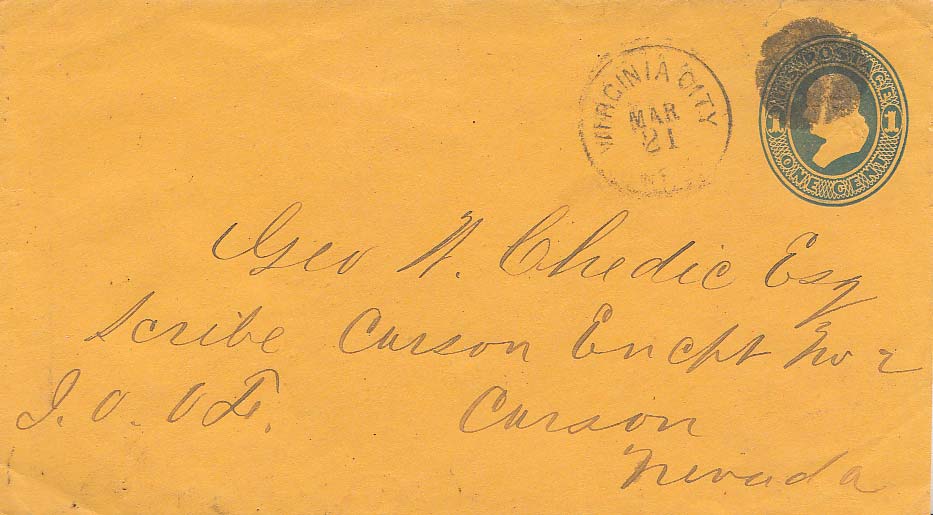 U.S. POSTAGE
1 1
ONE CENT
VIRGINIA CITY
MAR
21
NEV
Geo W. Chedic Esq
Scribe Carson Encpt No 2
I. O. O F.
Carson
Nevada